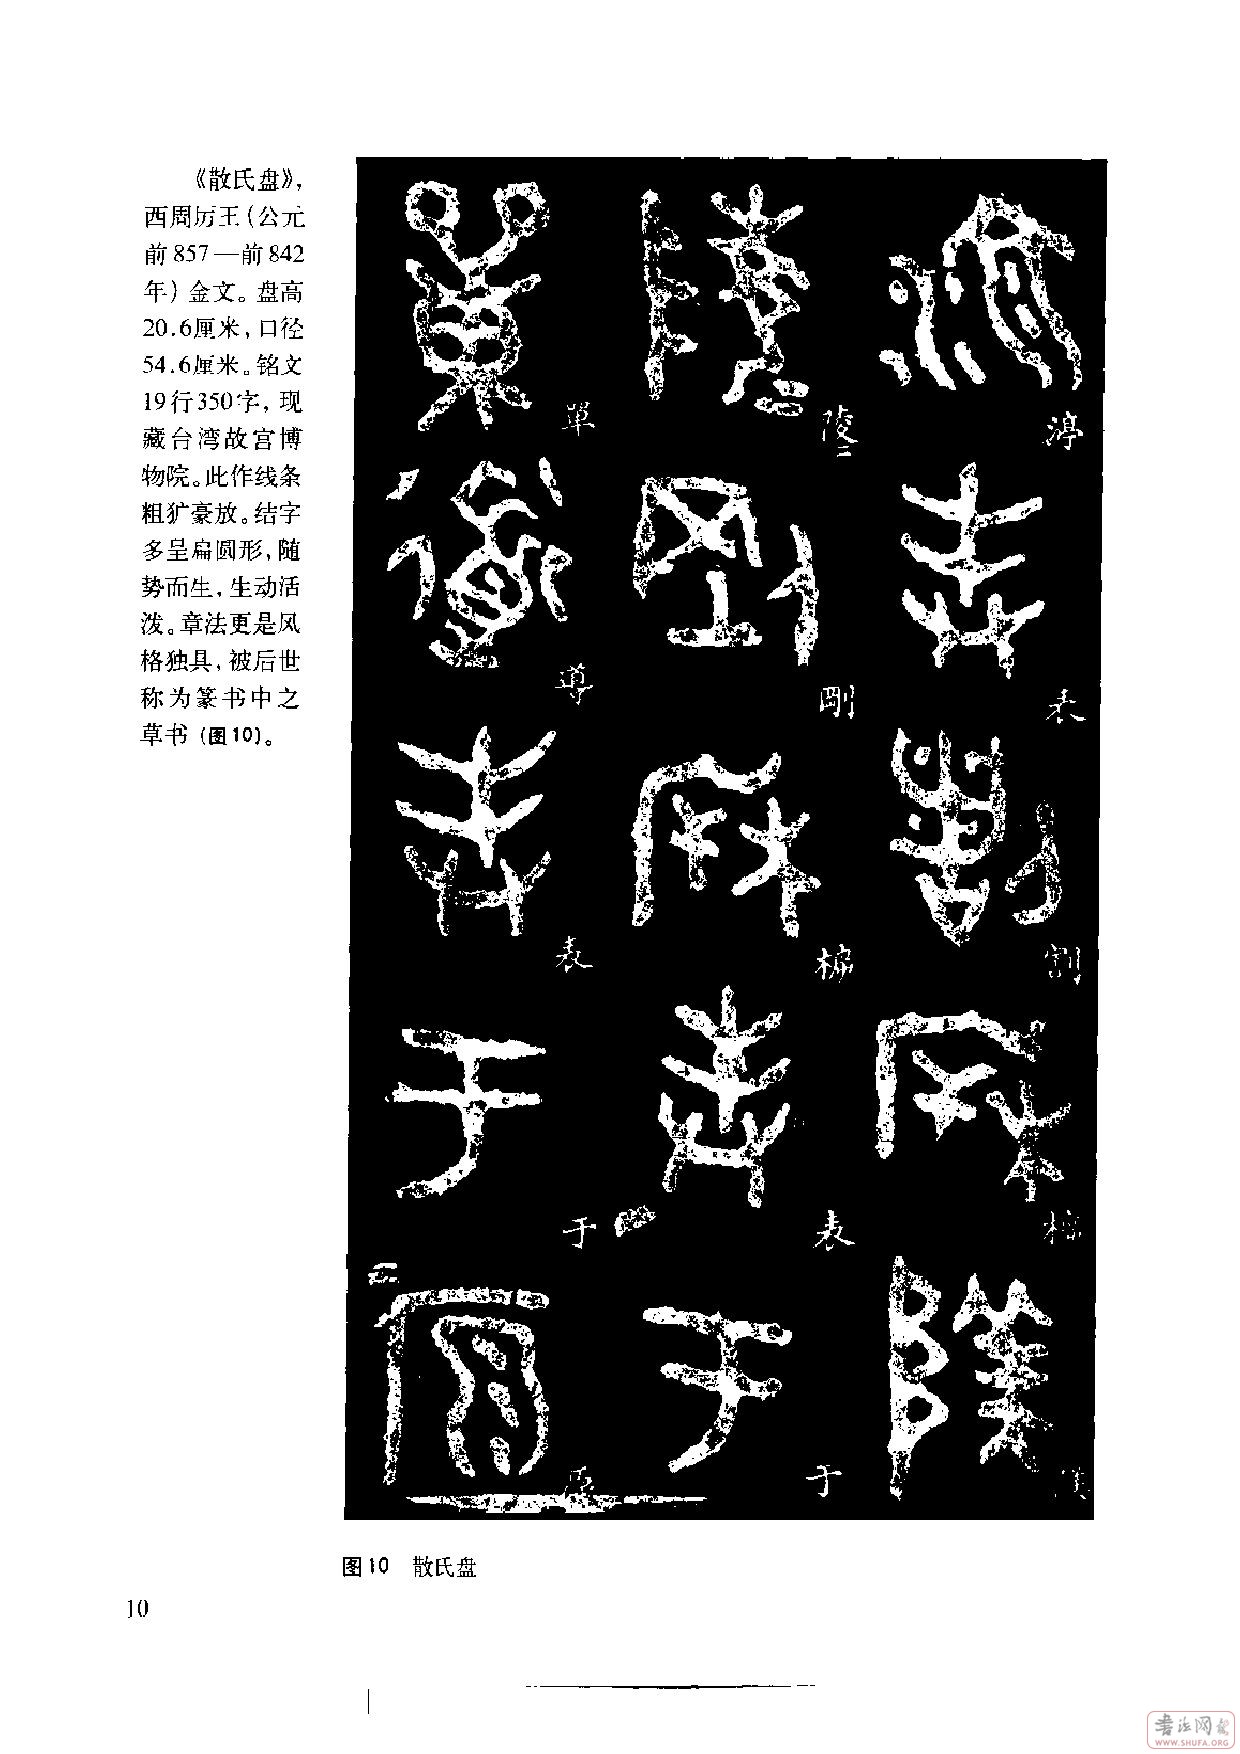 《散氏盘》,
西周厉王(公元
前857—前842
年)金文。盘高
20.6厘米,口径
54.6厘米。铭文
19行350字,现
藏台湾故宫博
物院。此作线条
粗犷豪放。结字
多呈扁圆形,随
势而生,生动活
泼。章法更是风
格独具,被后世
称为篆书中之
草书(图10)。
表
割
陵
剛
表
于
單
導
表
于
图10 散氏盘
10
書法网
WWW.SHUFA.ORG